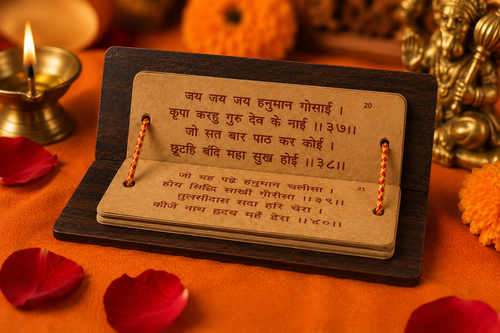 जय जय जय हनुमान गोसाई ।
20
कृपा करहु गुरु देव के नाई ।।३७।।
जो सत बार पाठ कर कोई ।
छूटहि बंदि महा सुख होई ।।३८।।
जो यह पढ़े हनुमान चलीसा ।
21
होय सिद्धि साखी गौरीसा ।।३९।।
तुलसीदास सदा हरि चेरा ।
कीजै नाथ हृदय महँ डेरा ।।४०।।